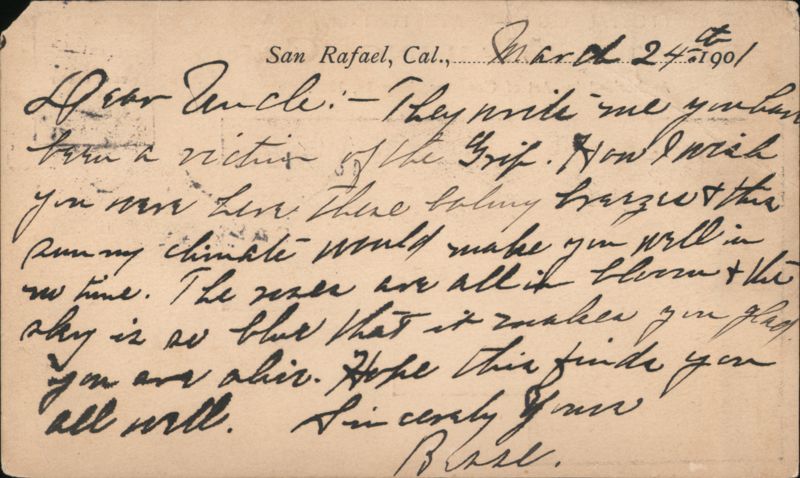 San Rafael, Cal., March 24th 1901
Dear Uncle:- They write me you have
been a victim of the Grip. How I wish
you were here. These balmy breezes & this
sunny climate would make you well in
no time. The roses are all in bloom & the
sky is so blue that it makes you glad
you are alive. Hope this finds you
all well. Sincerely Yours
Besse.